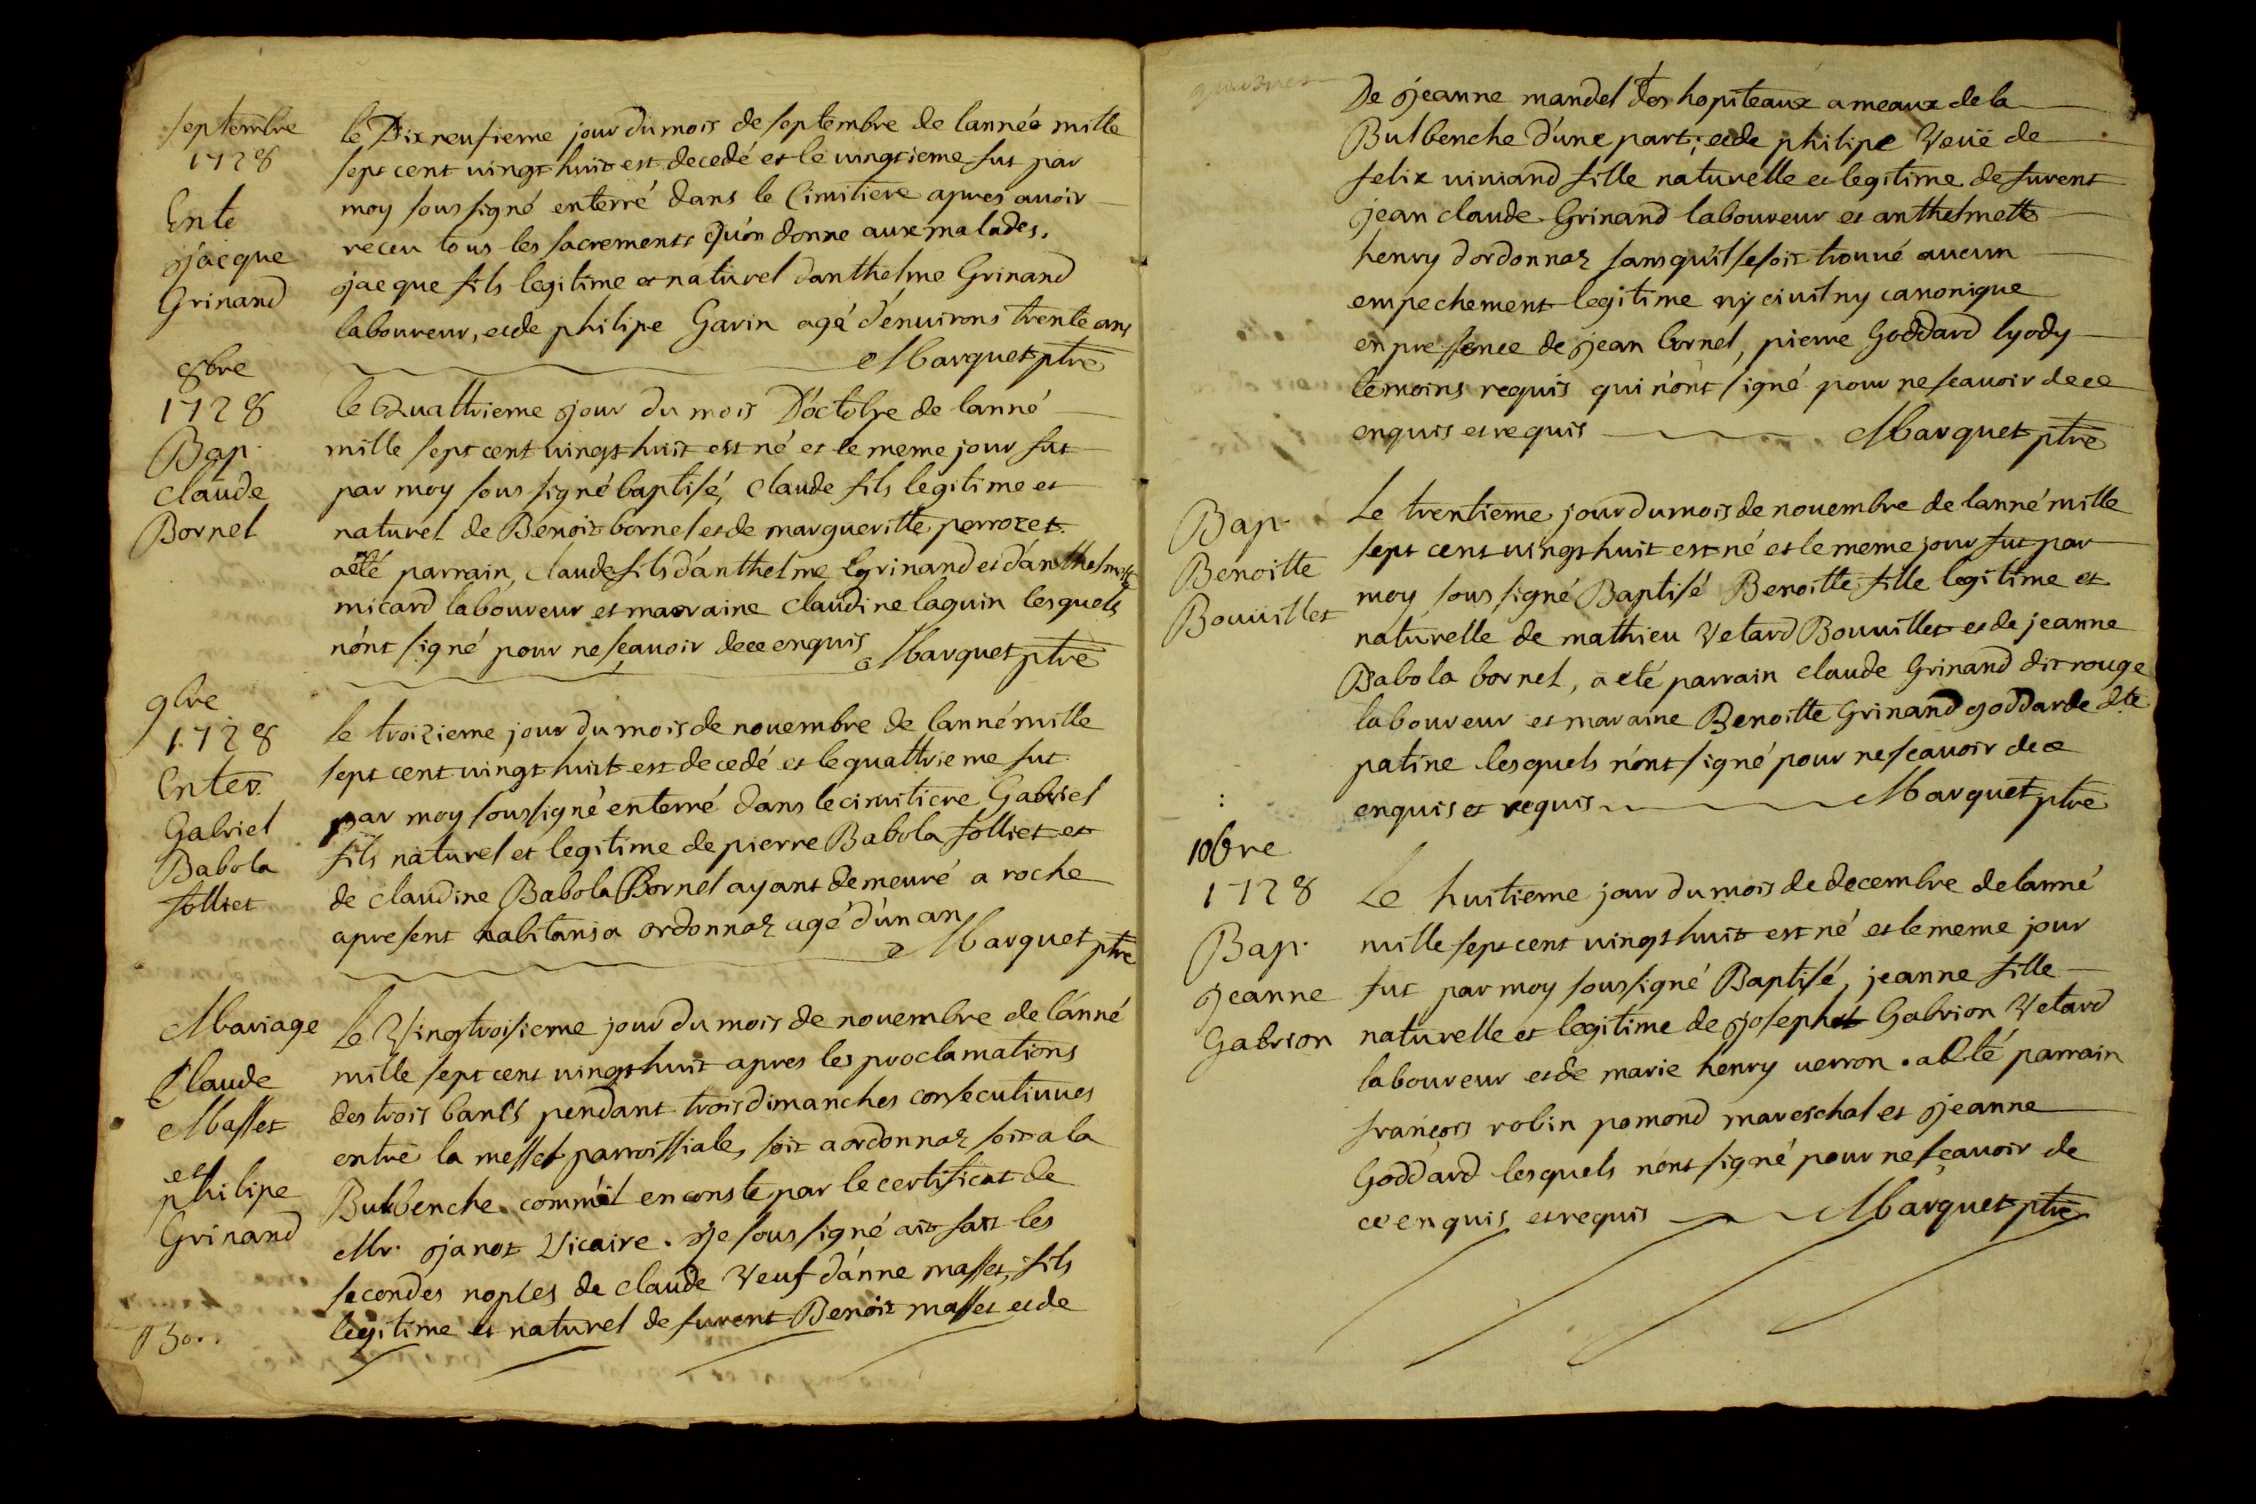 septembre
1728
Ente
jacque
Grinand
le Dix neufieme jour du mois de septembre de lannée mille
sept cent vingt huit est decedé et le vingtieme fut par
moy sous signé enterré dans le Cimitiere apres avoir
receu tous les sacrements qu'on donne aux malades,
jacque fils legitime et naturel d'anthelme Grinand
laboureur, et de philipe Gavin agé d'environs trente ans
Marquet ptre
8bre
1728
Bap.
claude
Bornet
le Quattrieme jour du mois D'octobre de lanné
mille sept cent vingt huit est né et le meme jour fut
par moy sous signé baptisé, claude fils legitime et
naturel de Benoit bornet et de margueritte perrozet
a eté parrain, claude fils d'anthelme grinand et d'anthelmette
micard laboureur et marraine claudine laguin lesquels
n'ont signé pour ne sçavoir de ce enquis Marquet ptre
9bre
1728
Enter
Gabriel
Babola
folliet
le troizieme jour du mois de novembre de lanné mille
sept cent vingt huit est decedé et le quattrieme fut
par moy soussigné enterré dans le cimitiere Gabriel
fils naturel et legitime de pierre Babola folliet et
de claudine Babola Bornet ayant demeuré a roche
apresent habitans a ordonnaz agé d'un an
Marquet ptre
Mariage
Claude
Masset
et
philipe
Grinand
Le Vingtroisieme jour du mois de novembre de lánné
mille sept cent vingt huit apres les proclamations
des trois bancs pendant trois dimanches consecutivves
entre la messe parroissiale, soit a ordonnaz soit a la
Bulbenche comme il en conste par le certificat de
Mr. janot Vicaire. je sous signé ait fait les
secondes nopces de claude Veuf d'anne masset, fils
legitime et naturel de furent Benoit masset et de
De jeanne mandet des hopiteaux ameaux de la
Bulbenche d'une part; et de philipe Veüe de
felix viviand fille naturelle et legitime de furent
jean claude Grinand laboureur et anthelmette
henry d'ordonnaz sans qu'il se soit trouvé aucun
empechement legitime ny civil ny canonique
en pressence de jean bornet, pierre Goddard lyody
temoins requis qui n'ont signé pour ne scavoir de ce
enquis et requis Marquet ptre
Bap.
Benoitte
Bouvillet
Le trentieme jour du mois de novembre de lanné mille
sept cent vingt huit est né et le meme jour fut par
moy sous signé Baptisé Benoitte fille legitime et
naturelle de mathieu Vetard Bouvillet et de jeanne
Babola bornet, a eté parrain claude Grinand dit rouge
laboureur et maraine Benoitte Grinand goddarde dte
patine lesquels n'ont signé pour ne scavoir de ce
enquis et requis Marquet ptre
10bre
1728
Bap.
jeanne
Gabrion
Le huitieme jour du mois de decembre de lanné
mille sept cent vingt huit est né et le meme jour
fut par moy soussigné Baptisé, jeanne fille
naturelle et legitime de joseph Gabrion Vetard
laboureur et de marie henry verron. a eté parrain
françois robin pomond mareschal et jeanne
Goddard lesquels n'ont signé pour ne sçavoir de
ce enquis et requis Marquet ptre